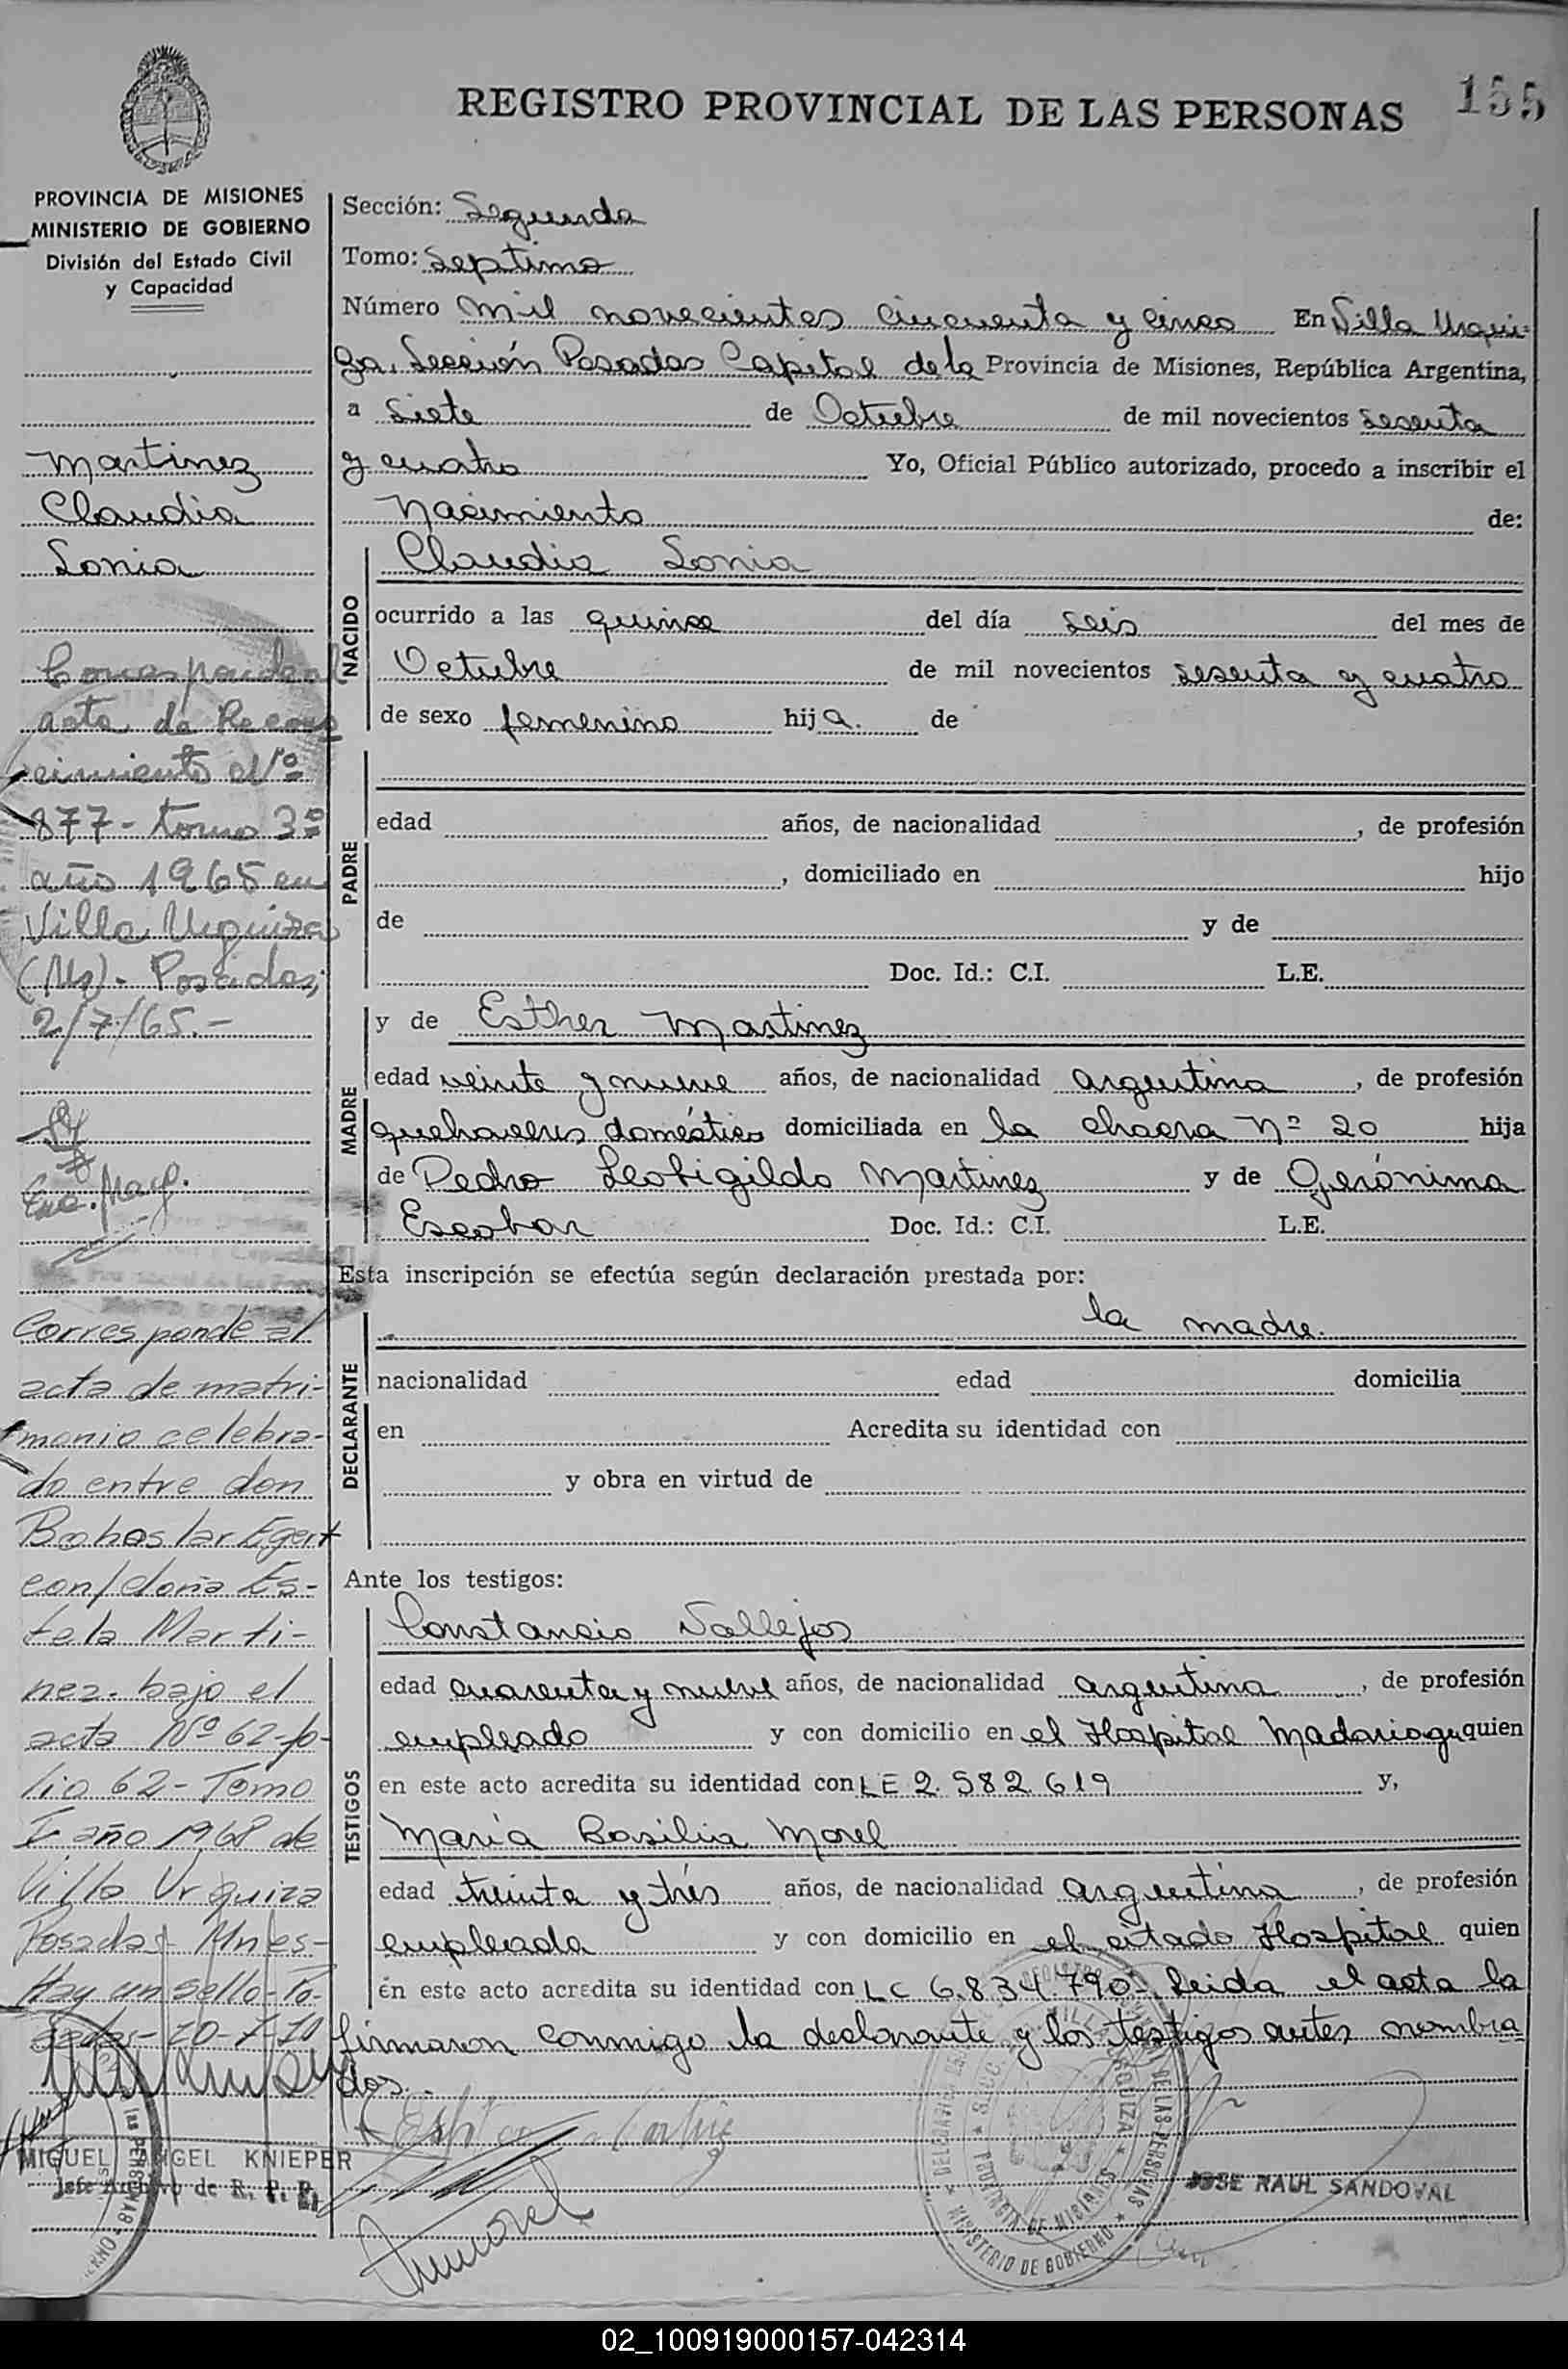 REGISTRO PROVINCIAL DE LAS PERSONAS 155
PROVINCIA DE MISIONES
MINISTERIO DE GOBIERNO
División del Estado Civil
y Capacidad
Martinez
Claudia
Sonia
Corresponde al
acta de Recono
cimiento Nº
877- tomo 3º
año 1965 en
Villa Urquiza
(Ms). Posadas,
2/7/65.-
Corresponde al
acta de matri-
monio celebra-
do entre don
Bohoslar Egert
con/doña Es-
tela Marti-
nez- bajo el
acta Nº 62-fo-
lio 62- Tomo
I año 1968 de
Villa Urquiza
Posadas Mnes-
Hay un sello- Po-
sadas- 20-7-70
MIGUEL ANGEL KNIEPER
Jefe Archivo de R. P. P.
Sección: Segunda
Tomo: Septimo
Número mil novecientos cincuenta y cinco En Villa Urqui-
za, Sección Posadas Capital de la Provincia de Misiones, República Argentina,
a siete de Octubre de mil novecientos sesenta
y cuatro Yo, Oficial Público autorizado, procedo a inscribir el
Nacimiento de:
NACIDO
Claudia Sonia
ocurrido a las quince del día seis del mes de
Octubre de mil novecientos sesenta y cuatro
de sexo femenino hija. de
PADRE
edad años, de nacionalidad , de profesión
, domiciliado en hijo
de y de
Doc. Id.: C.I. L.E.
MADRE
y de Esther Martinez
edad veinte y nueve años, de nacionalidad argentina, de profesión
quehaceres domésticos domiciliada en la chacra Nº 20 hija
de Pedro Leovigildo Martinez y de Gerónima
Escobar Doc. Id.: C.I. L.E.
Esta inscripción se efectúa según declaración prestada por:
DECLARANTE
la madre.
nacionalidad edad domicilia
en Acredita su identidad con
y obra en virtud de
Ante los testigos:
TESTIGOS
Constancio Vallejos
edad cuarenta y nueve años, de nacionalidad argentina, de profesión
empleado y con domicilio en el Hospital Madariaga quien
en este acto acredita su identidad con LE 2.582.619 y,
María Basilia Morel
edad treinta y trés años, de nacionalidad argentina, de profesión
empleada y con domicilio en el citado Hospital quien
en este acto acredita su identidad con LC 6.834.790- Leida el acta la
firmaron conmigo la declarante y los testigos antes nombra
dos.
JOSE RAUL SANDOVAL
02_100919000157-042314